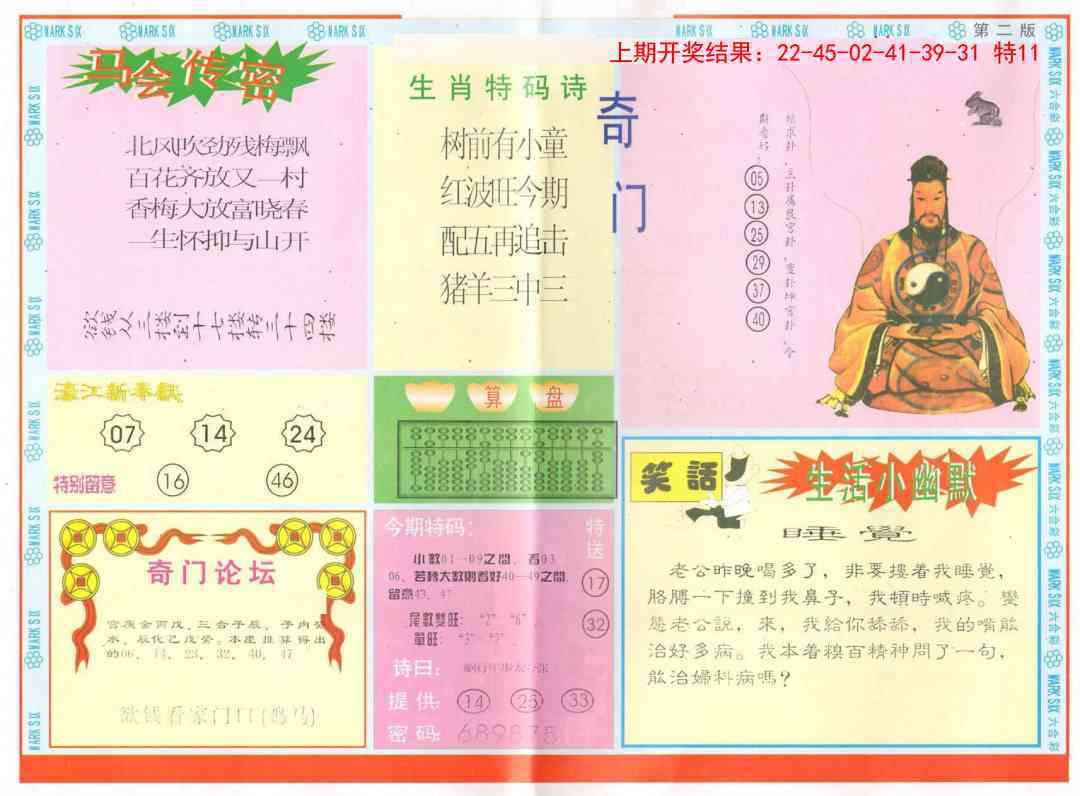 MARK SIX MARK SIX MARK SIX MARK SIX MARK SIX MARK SIX MARK SIX 第二版
上期开奖结果：22-45-02-41-39-31 特11
马会传密
北风吹劲残梅飘
百花齐放又一村
香梅大放富晓春
一生怀抑与山开
欲钱从三楼到十七楼转三十四楼
生肖特码诗
树前有小童
红波旺今期
配五再追击
猪羊三中三
奇门
05
13
25
29
37
40
濠江新春献
07 14 24
特别留意 16 46
算盘
奇门论坛
的06、14、23、32、40、47
欲钱看家门口(鸡马)
今期特码：
小数01—09之間，看03
06、若轉大數則看好40—49之間，
留意43、47
尾数雙旺： "2" "6"
單旺：
特送
17
32
诗曰：
提供： 14 25 33
密码：689835
笑話
生活小幽默
睡覺
老公昨晚喝多了，非要摟着我睡覺，
胳膊一下撞到我鼻子，我頓時喊疼。變
態老公説，來，我給你舔舔，我的嘴能
治好多病。我本着糗百精神問了一句，
能治婦科病嗎？
MARK SIX 六合彩